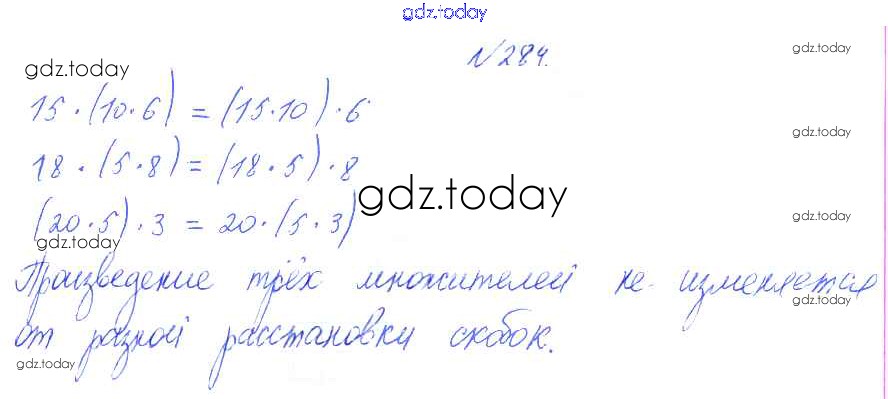 gdz.today
№284.
gdz.today
gdz.today
15·(10·6) = (15·10)·6
gdz.today
18·(5·8) = (18·5)·8
gdz.today
(20·5)·3 = 20·(5·3)
gdz.today
gdz.today
Произведение трёх множителей не изменяется
gdz.today
от разной расстановки скобок.
gdz.today